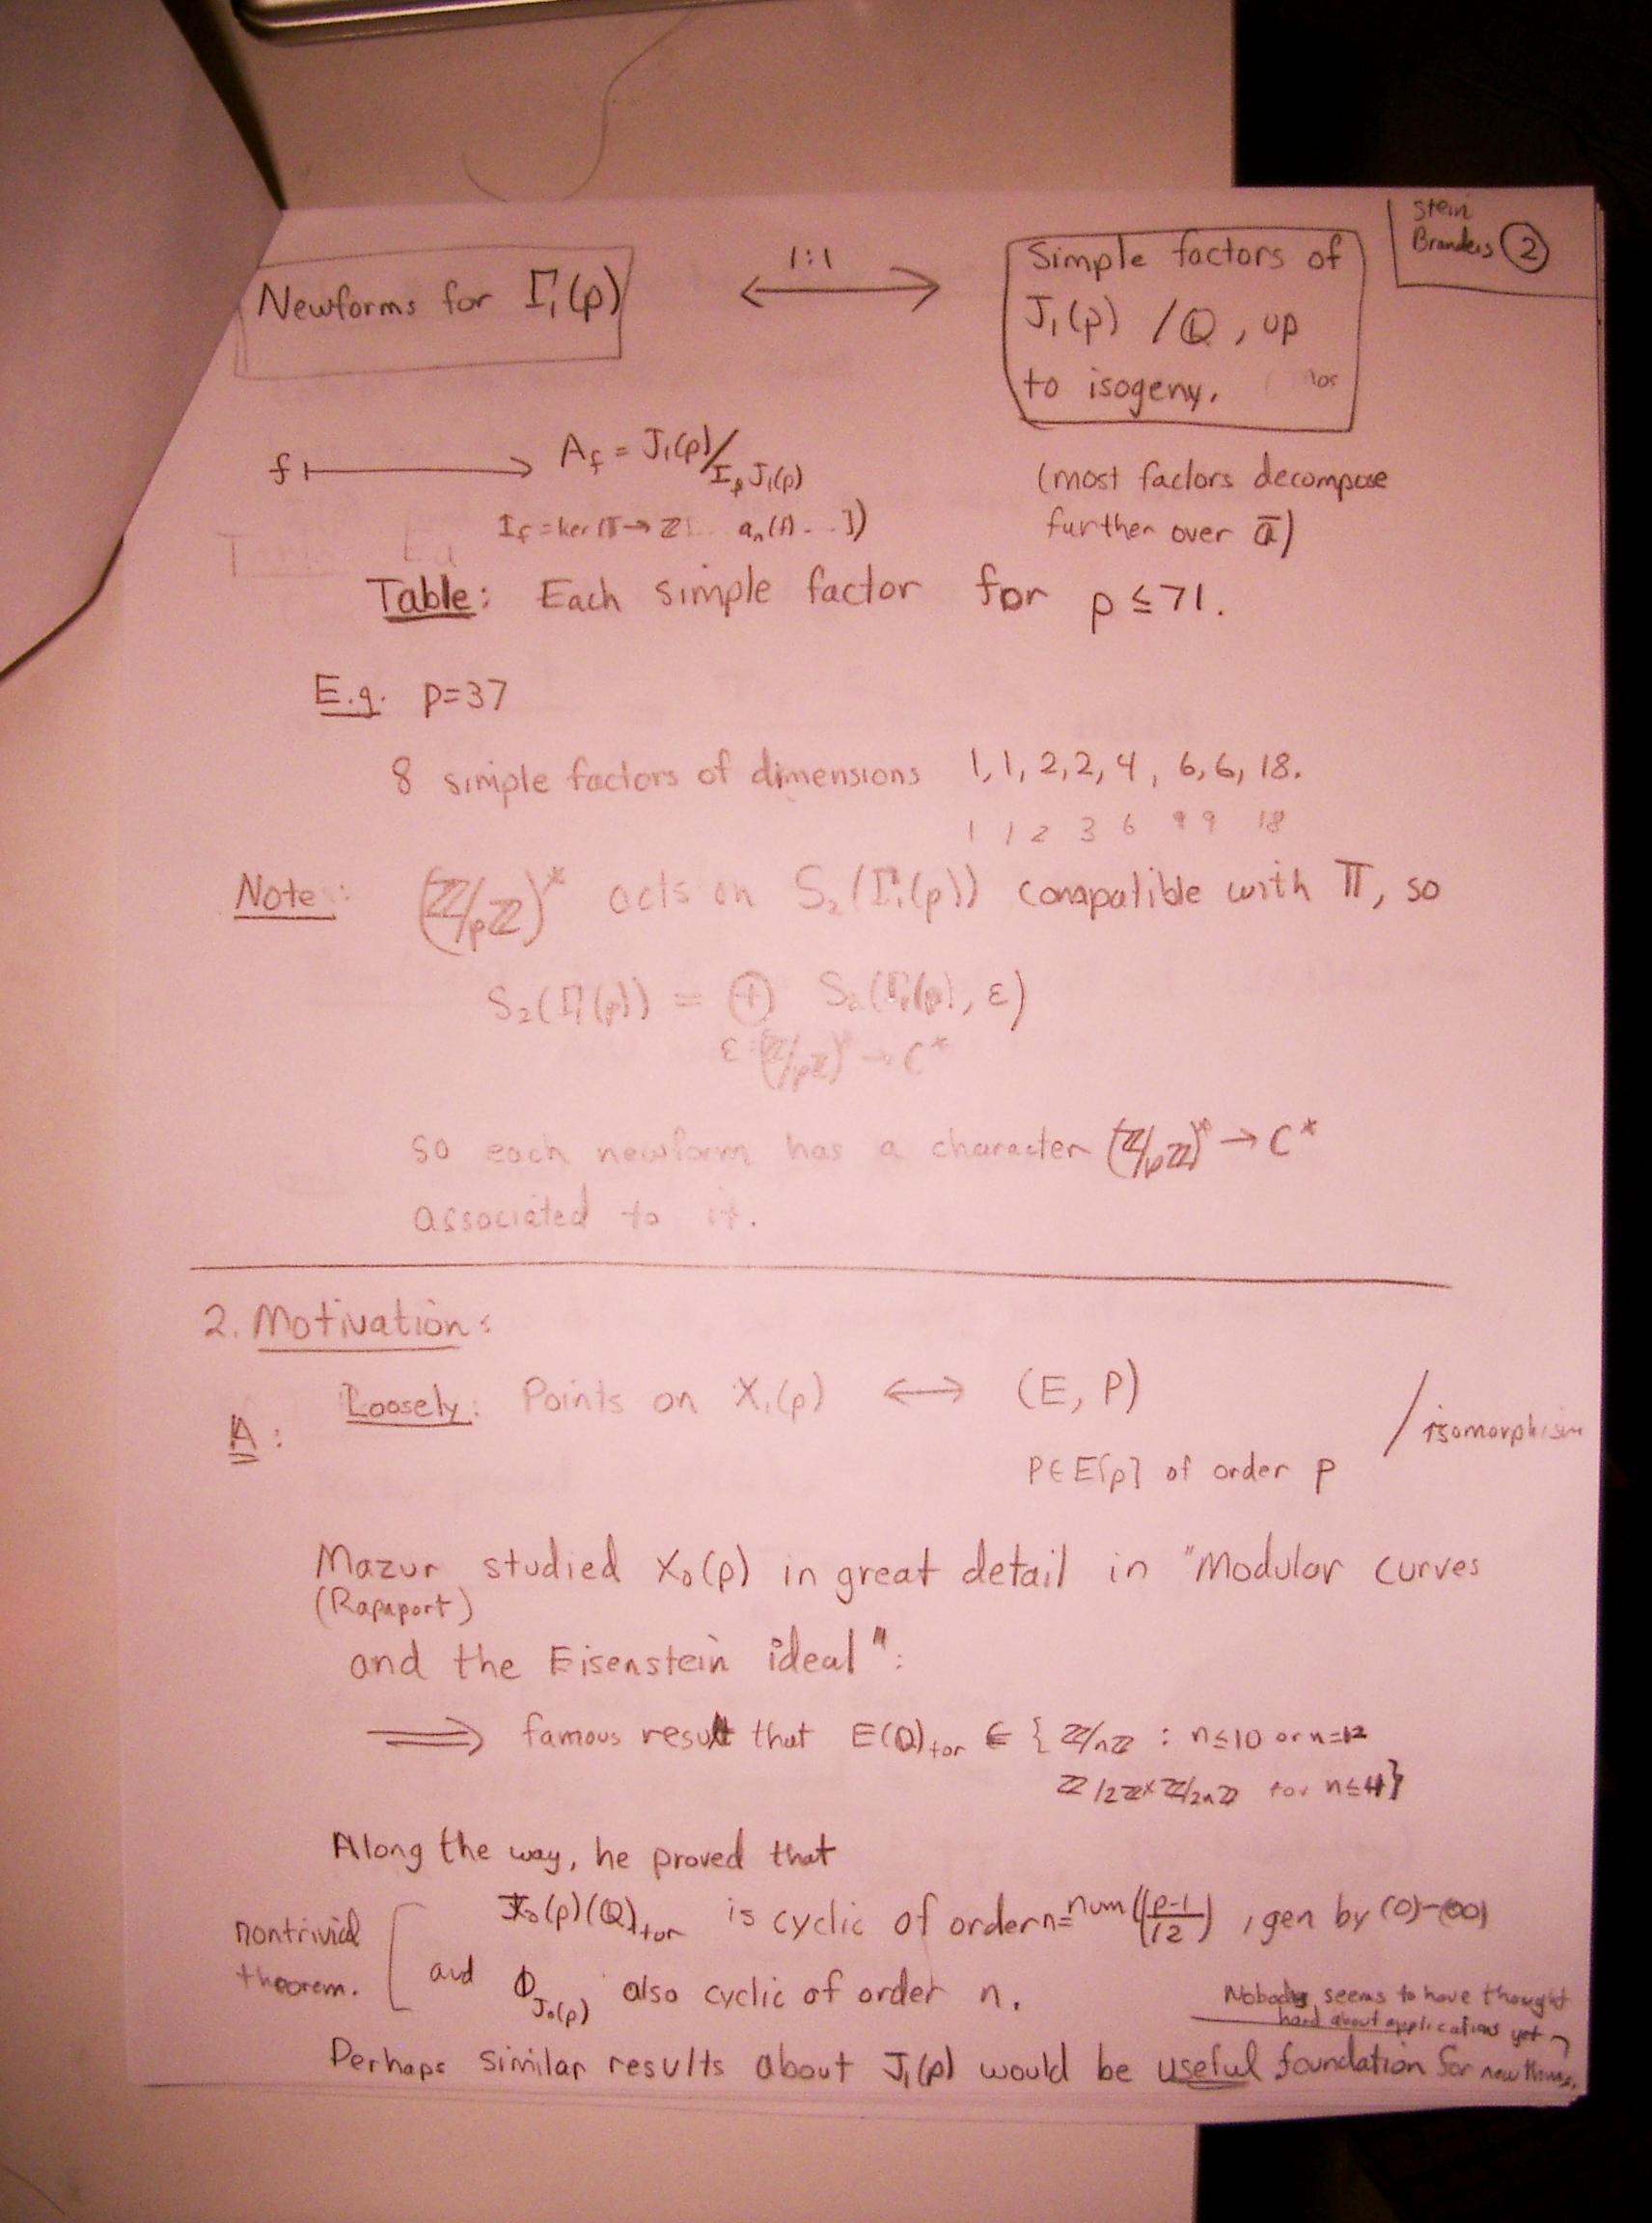 Stein
Brandeis ②
Newforms for Γ₁(p)
1:1
⟷
Simple factors of
J₁(p) /ℚ, up
to isogeny.
f ⟼ A_f = J₁(p)/I_f J₁(p)
I_f = ker(𝕋 → ℤ[... a_n(f) ...])
(most factors decompose
further over ℚ̄)
Table: Each simple factor for p ≤ 71.
E.g. p=37
8 simple factors of dimensions 1, 1, 2, 2, 4, 6, 6, 18.
1 1 2 3 6 9 9 18
Note: (ℤ/pℤ)* acts on S₂(Γ₁(p)) compatible with 𝕋, so
S₂(Γ₁(p)) = ⊕ S₂(Γ₁(p), ε)
ε: (ℤ/pℤ)* → C*
so each newform has a character (ℤ/pℤ)* → C*
associated to it.
2. Motivation:
A: Loosely: Points on X₁(p) ⟷ (E, P) / isomorphism
P∈E[p] of order p
Mazur studied X₀(p) in great detail in "Modular curves
(Rapaport)
and the Eisenstein ideal":
⟹ famous result that E(ℚ)_tor ∈ { ℤ/nℤ : n≤10 or n=12
ℤ/2ℤ×ℤ/2nℤ for n≤4}
Along the way, he proved that
nontrivial
theorem.
J₀(p)(ℚ)_tor is cyclic of order n=num((p-1)/12), gen by (0)-(∞)
and Φ_J₀(p) also cyclic of order n.
Nobody seems to have thought
hard about applications yet
Perhaps similar results about J₁(p) would be useful foundation for new things.